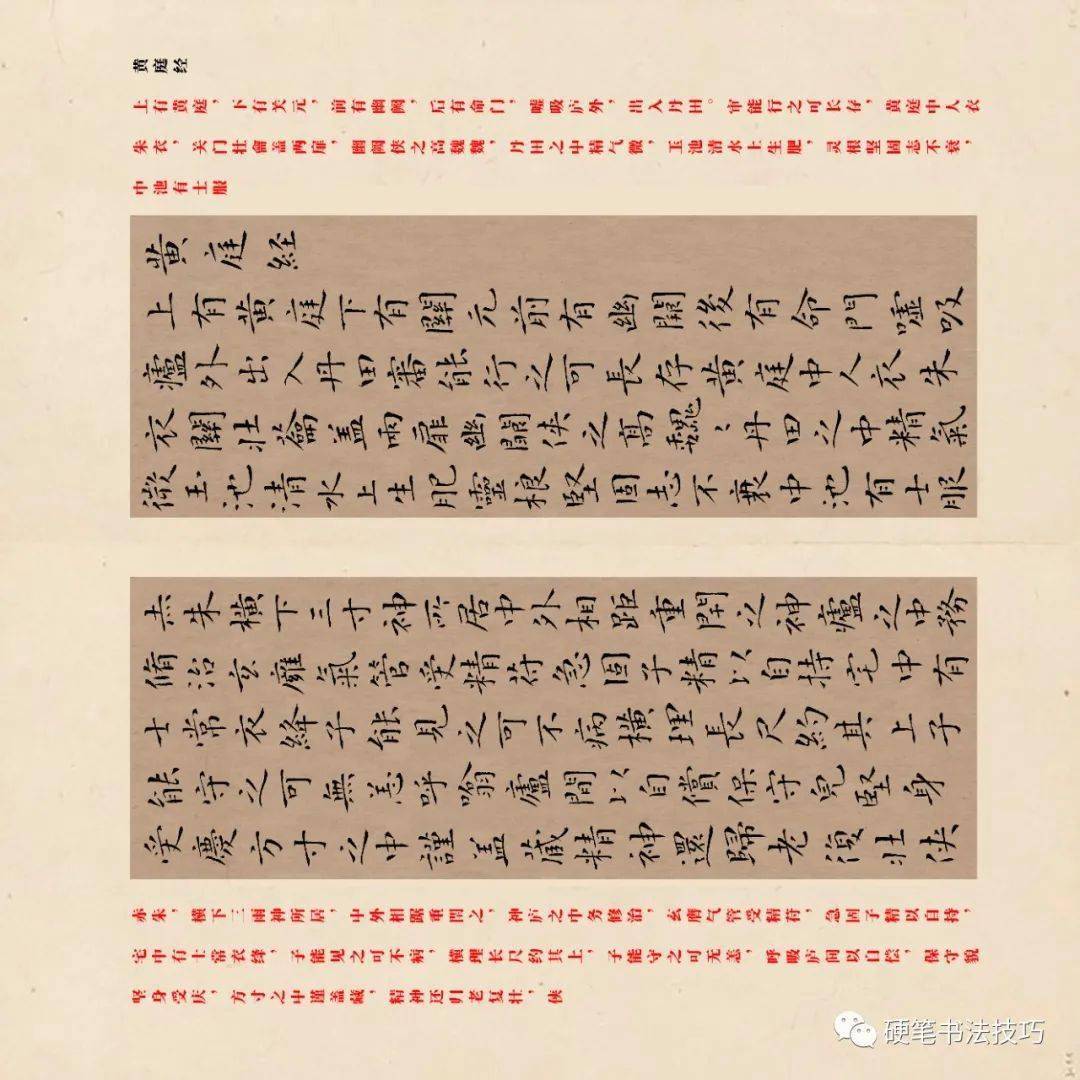 黄庭经
上有黄庭，下有关元，前有幽阙，后有命门，嘘吸庐外，出入丹田。审能行之可长存，黄庭中人衣
朱衣，关门壮龠盖两扉，幽阙侠之高魏魏，丹田之中精气微，玉池清水上生肥，灵根坚固志不衰，
中池有士服
黄庭経
上有黄庭下有關元前有幽闕後有命門嘘吸
廬外出入丹田審能行之可長存黄庭中人衣朱
衣關壮蘥盖兩扉幽闕侠之高魏〻丹田之中精氣
微玉池清水上生肥靈根堅固志不衰中池有士服
赤朱横下三寸神所居中外相距重閇之神廬之中務
脩治玄癰氣管受精苻急固子精以自持宅中有
士常衣絳子能見之可不病横理長尺約其上子
能守之可無恙呼噏廬間以自償保守皃堅身
受慶方寸之中謹盖蔵精神還歸老復壮侠
赤朱，横下三雨神所居，中外相踞重閇之，神庐之中务修治，玄膺气管受精苻，急固子精以自持，
宅中有士常衣绛，子能见之可不病，横理长尺约其上，子能守之可无恙，呼吸庐间以自偿，保守貌
坚身受庆，方寸之中谨盖藏，精神还归老复壮，侠
硬笔书法技巧